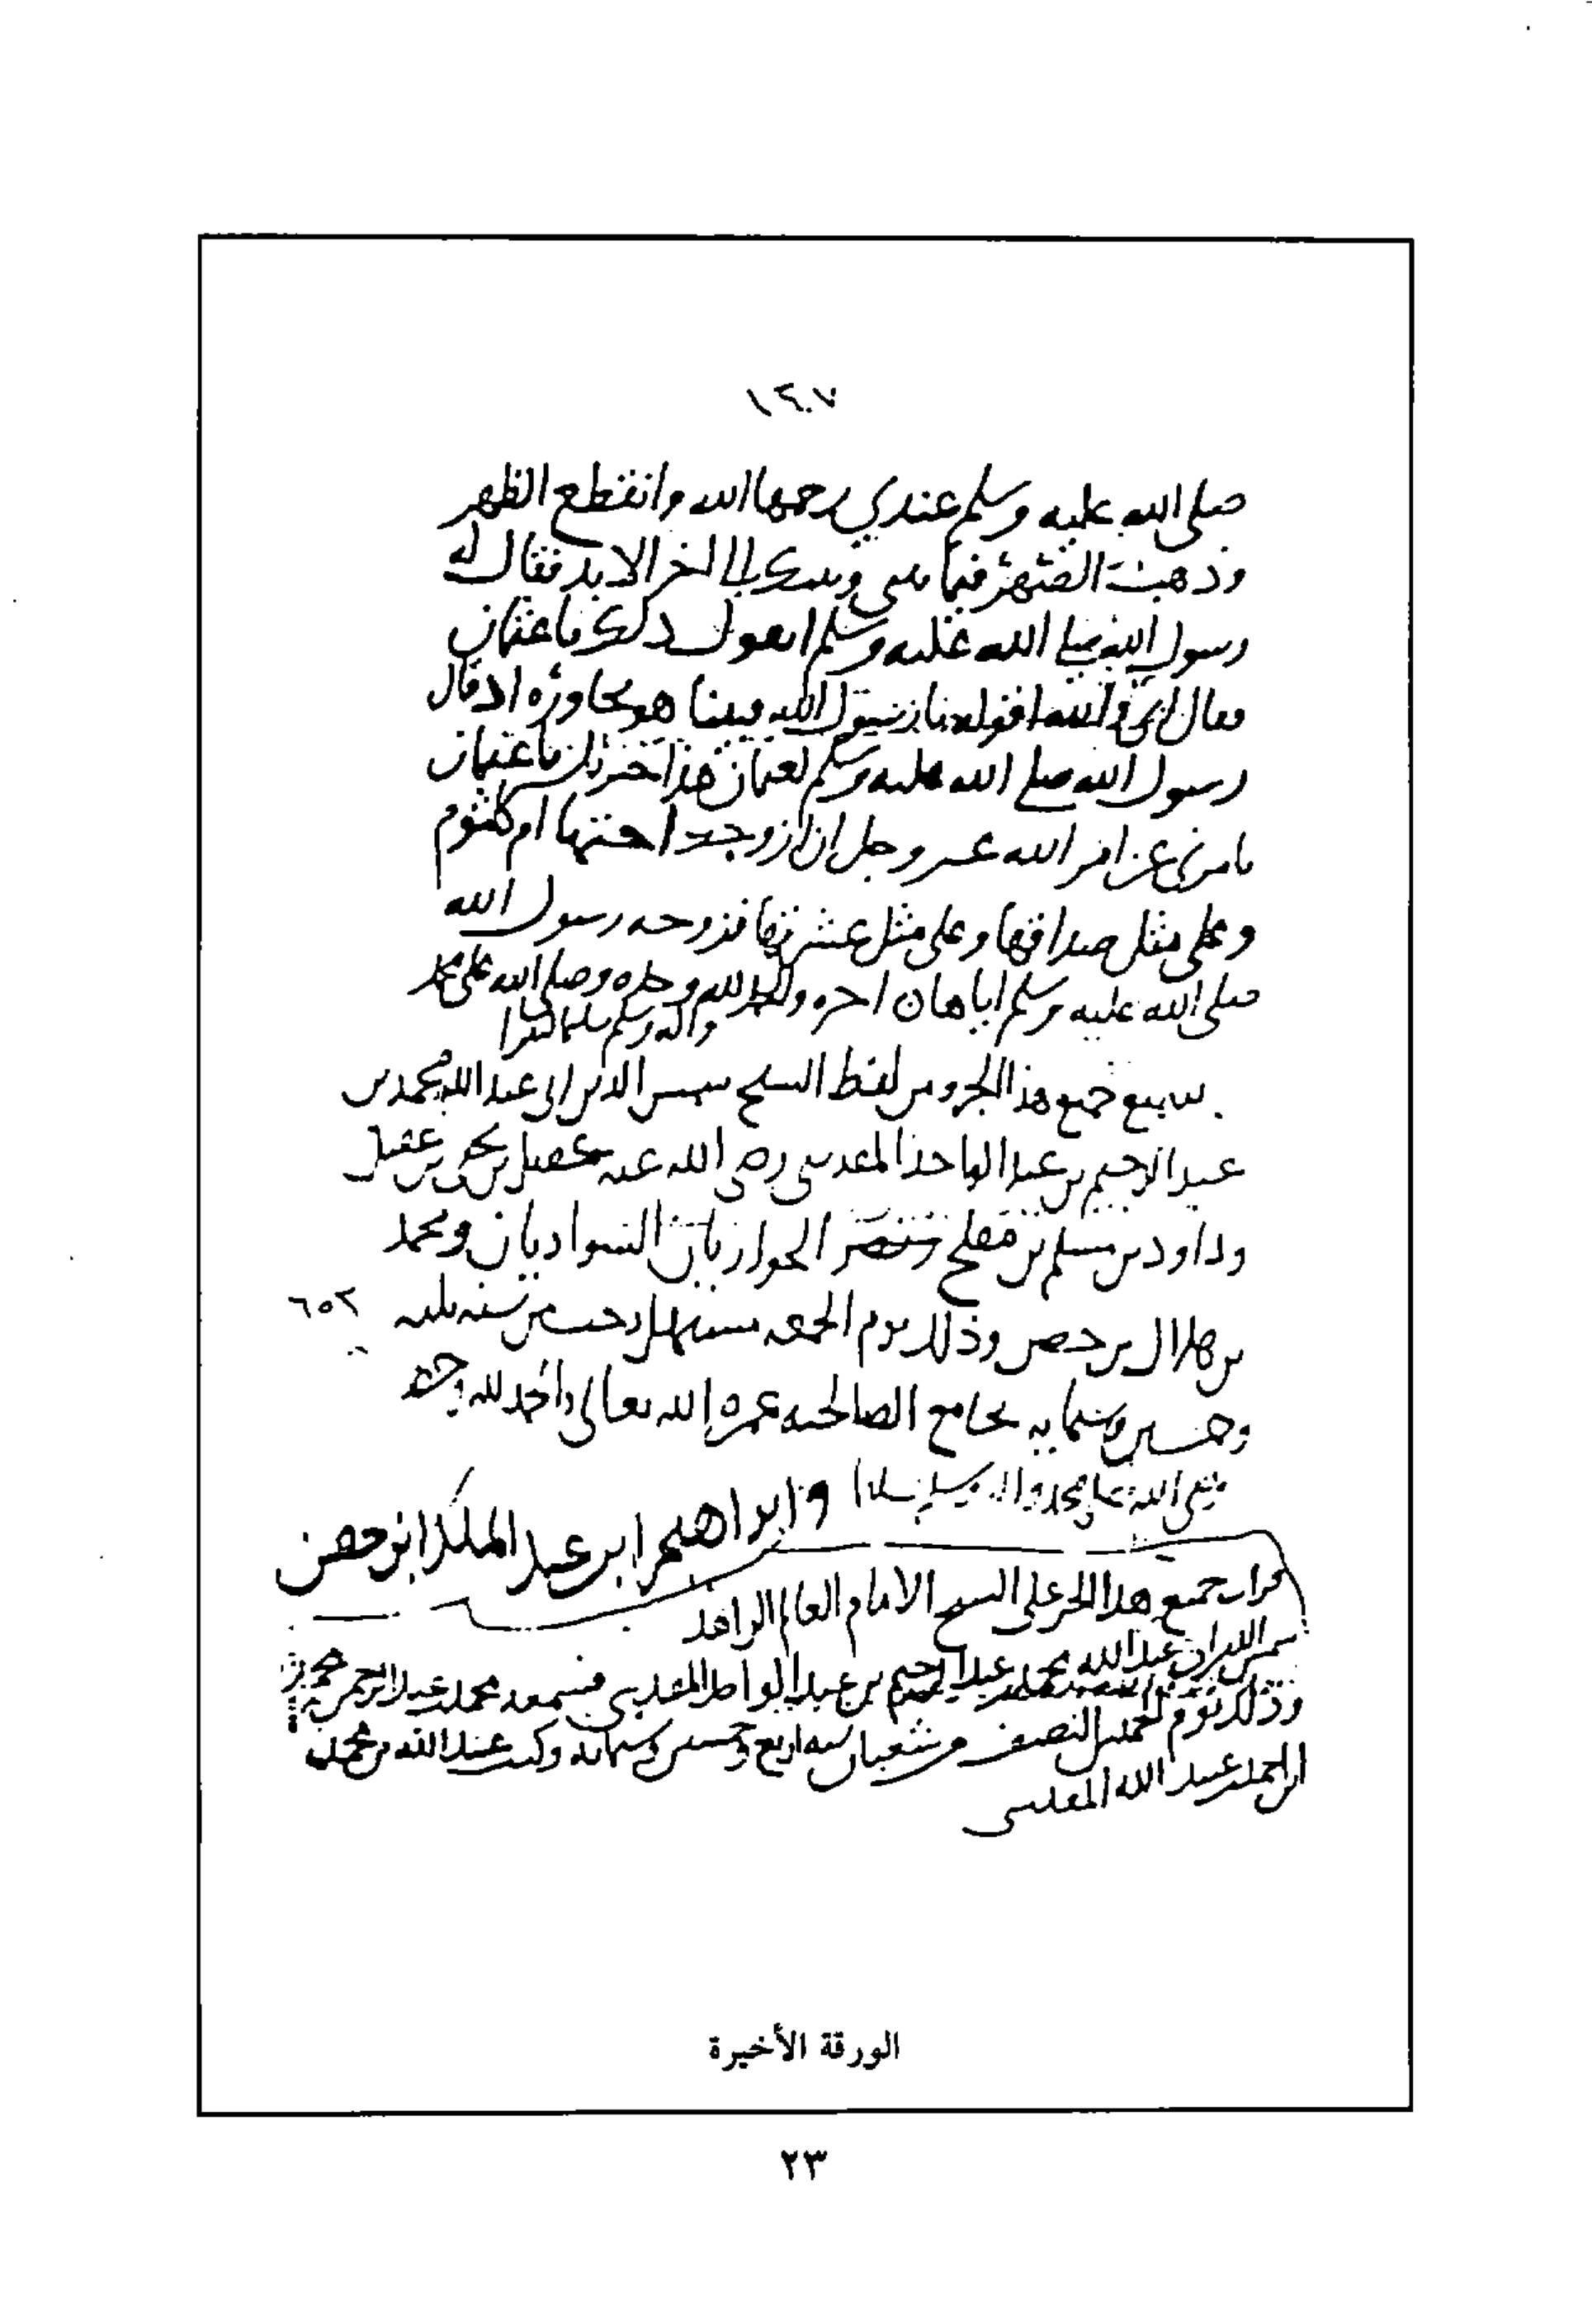 ١٢٠٧
صلى الله عليه وسلم عندي رحمها الله وانقطع الظهر
وذهب الصهر فيما بيني وبينك الى اخر الابد فقال له
رسول الله صلى الله عليه وسلم اتقول ذلك يا عثمان
فقال اي والله اقوله يا رسول الله فبينا هو يحاوره اذ قال
رسول الله صلى الله عليه وسلم لعثمان هذا جبريل يا عثمان
يامرني عن امر الله عز وجل ان ازوجك اختها ام كلثوم
وعلى مثل صداقها وعلى مثل عشرتها فزوجه رسول الله
صلى الله عليه وسلم اياها ن اخره والحمد لله وحده وصلى الله على محمد
واله وسلم تسليما كثيرا
سمع جميع هذا الجزو من لفظ الشيخ شمس الدين ابي عبد الله محمد بن
عبد الرحيم بن عبد الواحد المقدسي رضي الله عنه عقيل بن يحيى بن عقيل
وداود بن مسلم بن مفلح الحواريان السواديان ومحمد
بن هلال بن حصن وذلك يوم الجمعة مستهل رجب من سنه ثلثه ٦٥٢
وخمسين وستمايه بجامع الصالحيه عمره الله تعالى والحمد لله وحده
صلى الله على محمد واله وسلم تسليما وابراهيم ابن عبد الملك ابن حصن
قرات جميع هذا الجز على الشيخ الامام العالم الزاهد
شمس الدين ابي عبد الله محمد بن عبد الرحيم بن عبد الواحد المقدسي فسمعه محمد بن عبد الرحمن بن
وذلك يوم النصف من شعبان سنه اربع وخمسين وستمايه وكتب عبد الله بن محمد
ابن احمد بن عبيد الله المقدسي
الورقة الأخيرة
٢٣